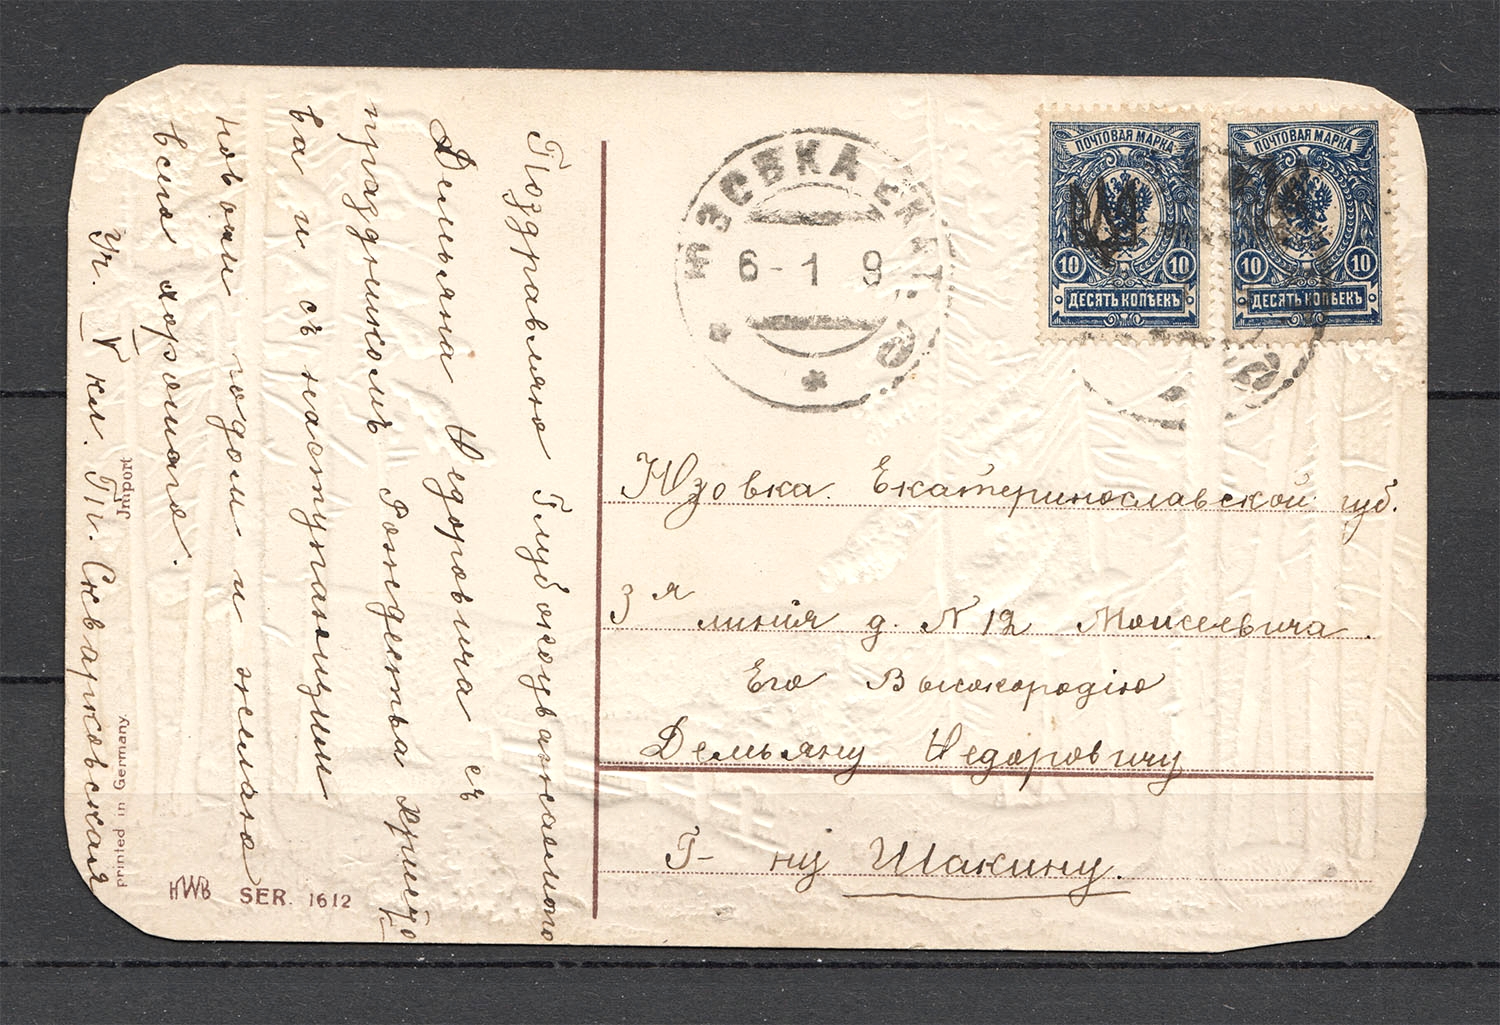 Поздравляю Глубокоуважаемого
Демьяна Федоровича съ
праздникомъ Рождества христо
ва и съ наступающим
новым годом и желаю
всего хорошаго.
Уч. V кл. Гр. Скварковская
Jmport
printed in Germany.
HWB SER. 1612
ЮЗОВКА ЕК
6-1 9
ПОЧТОВАЯ МАРКА
10 10
ДЕСЯТЬ КОПѢЕКЪ
ПОЧТОВАЯ МАРКА
10 10
ДЕСЯТЬ КОПѢЕКЪ
Юзовка. Екатеринославской губ.
3я линія д. N 12 Моисеевича.
Его Высокородію
Демьяну Федоровичу
Г-ну Шакину.